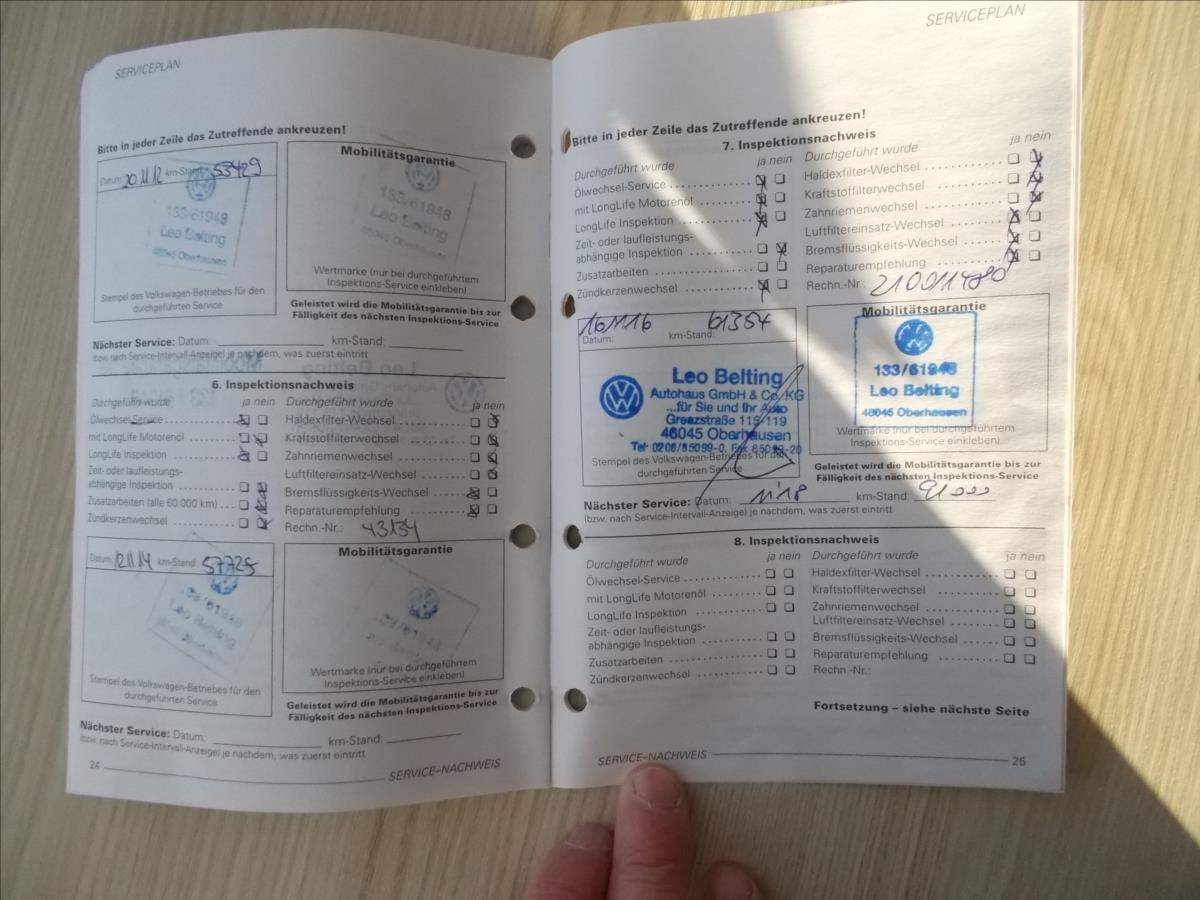 SERVICEPLAN
Bitte in jeder Zeile das Zutreffende ankreuzen!
Datum: 20.11.12 km-Stand: 53429
133/61948
Leo Belting
46045 Oberhausen
Stempel des Volkswagen-Betriebes für den
durchgeführten Service
Mobilitätsgarantie
133/61948
Leo Belting
46045 Oberhausen
Wertmarke (nur bei durchgeführtem
Inspektions-Service einkleben)
Geleistet wird die Mobilitätsgarantie bis zur
Fälligkeit des nächsten Inspektions-Service
Nächster Service: Datum: km-Stand:
(bzw. nach Service-Intervall-Anzeige) je nachdem, was zuerst eintritt
6. Inspektionsnachweis
Durchgeführt wurde ja nein
Ölwechsel-Service
mit LongLife Motorenöl
LongLife Inspektion
Zeit- oder laufleistungs-
abhängige Inspektion
Zusatzarbeiten (alle 60 000 km)
Zündkerzenwechsel
Durchgeführt wurde ja nein
Haldexfilter-Wechsel
Kraftstoffilterwechsel
Zahnriemenwechsel
Luftfiltereinsatz-Wechsel
Bremsflüssigkeits-Wechsel
Reparaturempfehlung
Rechn.-Nr.: 43134
Datum: 12.11.14 km-Stand: 57725
133/61948
Leo Belting
Stempel des Volkswagen-Betriebes für den
durchgeführten Service
Mobilitätsgarantie
Wertmarke (nur bei durchgeführtem
Inspektions-Service einkleben)
Geleistet wird die Mobilitätsgarantie bis zur
Fälligkeit des nächsten Inspektions-Service
Nächster Service: Datum: km-Stand:
(bzw. nach Service-Intervall-Anzeige) je nachdem, was zuerst eintritt
24 SERVICE–NACHWEIS
SERVICEPLAN
Bitte in jeder Zeile das Zutreffende ankreuzen!
7. Inspektionsnachweis
Durchgeführt wurde ja nein
Ölwechsel-Service
mit LongLife Motorenöl
LongLife Inspektion
Zeit- oder laufleistungs-
abhängige Inspektion
Zusatzarbeiten
Zündkerzenwechsel
Durchgeführt wurde ja nein
Haldexfilter-Wechsel
Kraftstoffilterwechsel
Zahnriemenwechsel
Luftfiltereinsatz-Wechsel
Bremsflüssigkeits-Wechsel
Reparaturempfehlung
Rechn.-Nr.: 210011480
16.11.16 61354
Datum: km-Stand:
Leo Belting
Autohaus GmbH & Co. KG
...für Sie und Ihr Auto
Grenzstraße 115-119
46045 Oberhausen
Tel. 0208/85099-0, Fax 85099-20
Stempel des Volkswagen-Betriebes für den
durchgeführten Service
Mobilitätsgarantie
133/61948
Leo Belting
46045 Oberhausen
Wertmarke (nur bei durchgeführtem
Inspektions-Service einkleben)
Geleistet wird die Mobilitätsgarantie bis zur
Fälligkeit des nächsten Inspektions-Service
Nächster Service: Datum: 11.18 km-Stand: 91000
(bzw. nach Service-Intervall-Anzeige) je nachdem, was zuerst eintritt
8. Inspektionsnachweis
Durchgeführt wurde ja nein
Ölwechsel-Service
mit LongLife Motorenöl
LongLife Inspektion
Zeit- oder laufleistungs-
abhängige Inspektion
Zusatzarbeiten
Zündkerzenwechsel
Durchgeführt wurde ja nein
Haldexfilter-Wechsel
Kraftstoffilterwechsel
Zahnriemenwechsel
Luftfiltereinsatz-Wechsel
Bremsflüssigkeits-Wechsel
Reparaturempfehlung
Rechn.-Nr.:
Fortsetzung – siehe nächste Seite
SERVICE–NACHWEIS 25